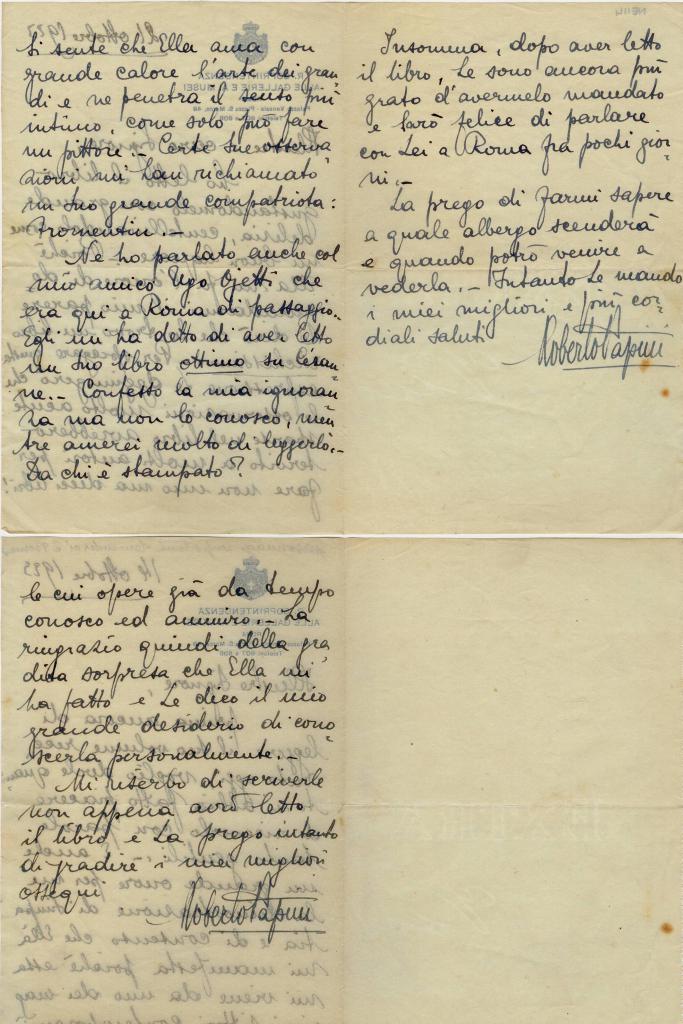 Si sente che Ella ama con
grande calore l'arte dei gran
di e ne penetra il senso più
intimo, come solo può fare
un pittore.- Certe Sue osserva
zioni mi han richiamato
un Suo grande compatriota:
Fromentin.-
Ne ho parlato anche col
mio amico Ugo Ojetti che
era qui a Roma di passaggio.
Egli mi ha detto di aver letto
un Suo libro ottimo su Cézan=
ne.- Confesso la mia ignoran
za ma non lo conosco, men
tre amerei molto di leggerlo.-
Da chi è stampato?
Insomma, dopo aver letto
il libro, Le sono ancora più
grato d'avermelo mandato
e sarò felice di parlare
con Lei a Roma fra pochi gior=
ni.-
La prego di farmi sapere
a quale albergo scenderà
e quando potrò venire a
vederla.- Intanto Le mando
i miei migliori e più cor=
diali saluti
Roberto Papini
le cui opere già da tempo
conosco ed ammiro.- La
ringrazio quindi della gra
dita sorpresa che Ella mi
ha fatto e Le dico il mio
grande desiderio di cono=
scerla personalmente.-
Mi riserbo di scriverle
non appena avrò letto
il libro e La prego intanto
di gradire i miei migliori
ossequi
Roberto Papini